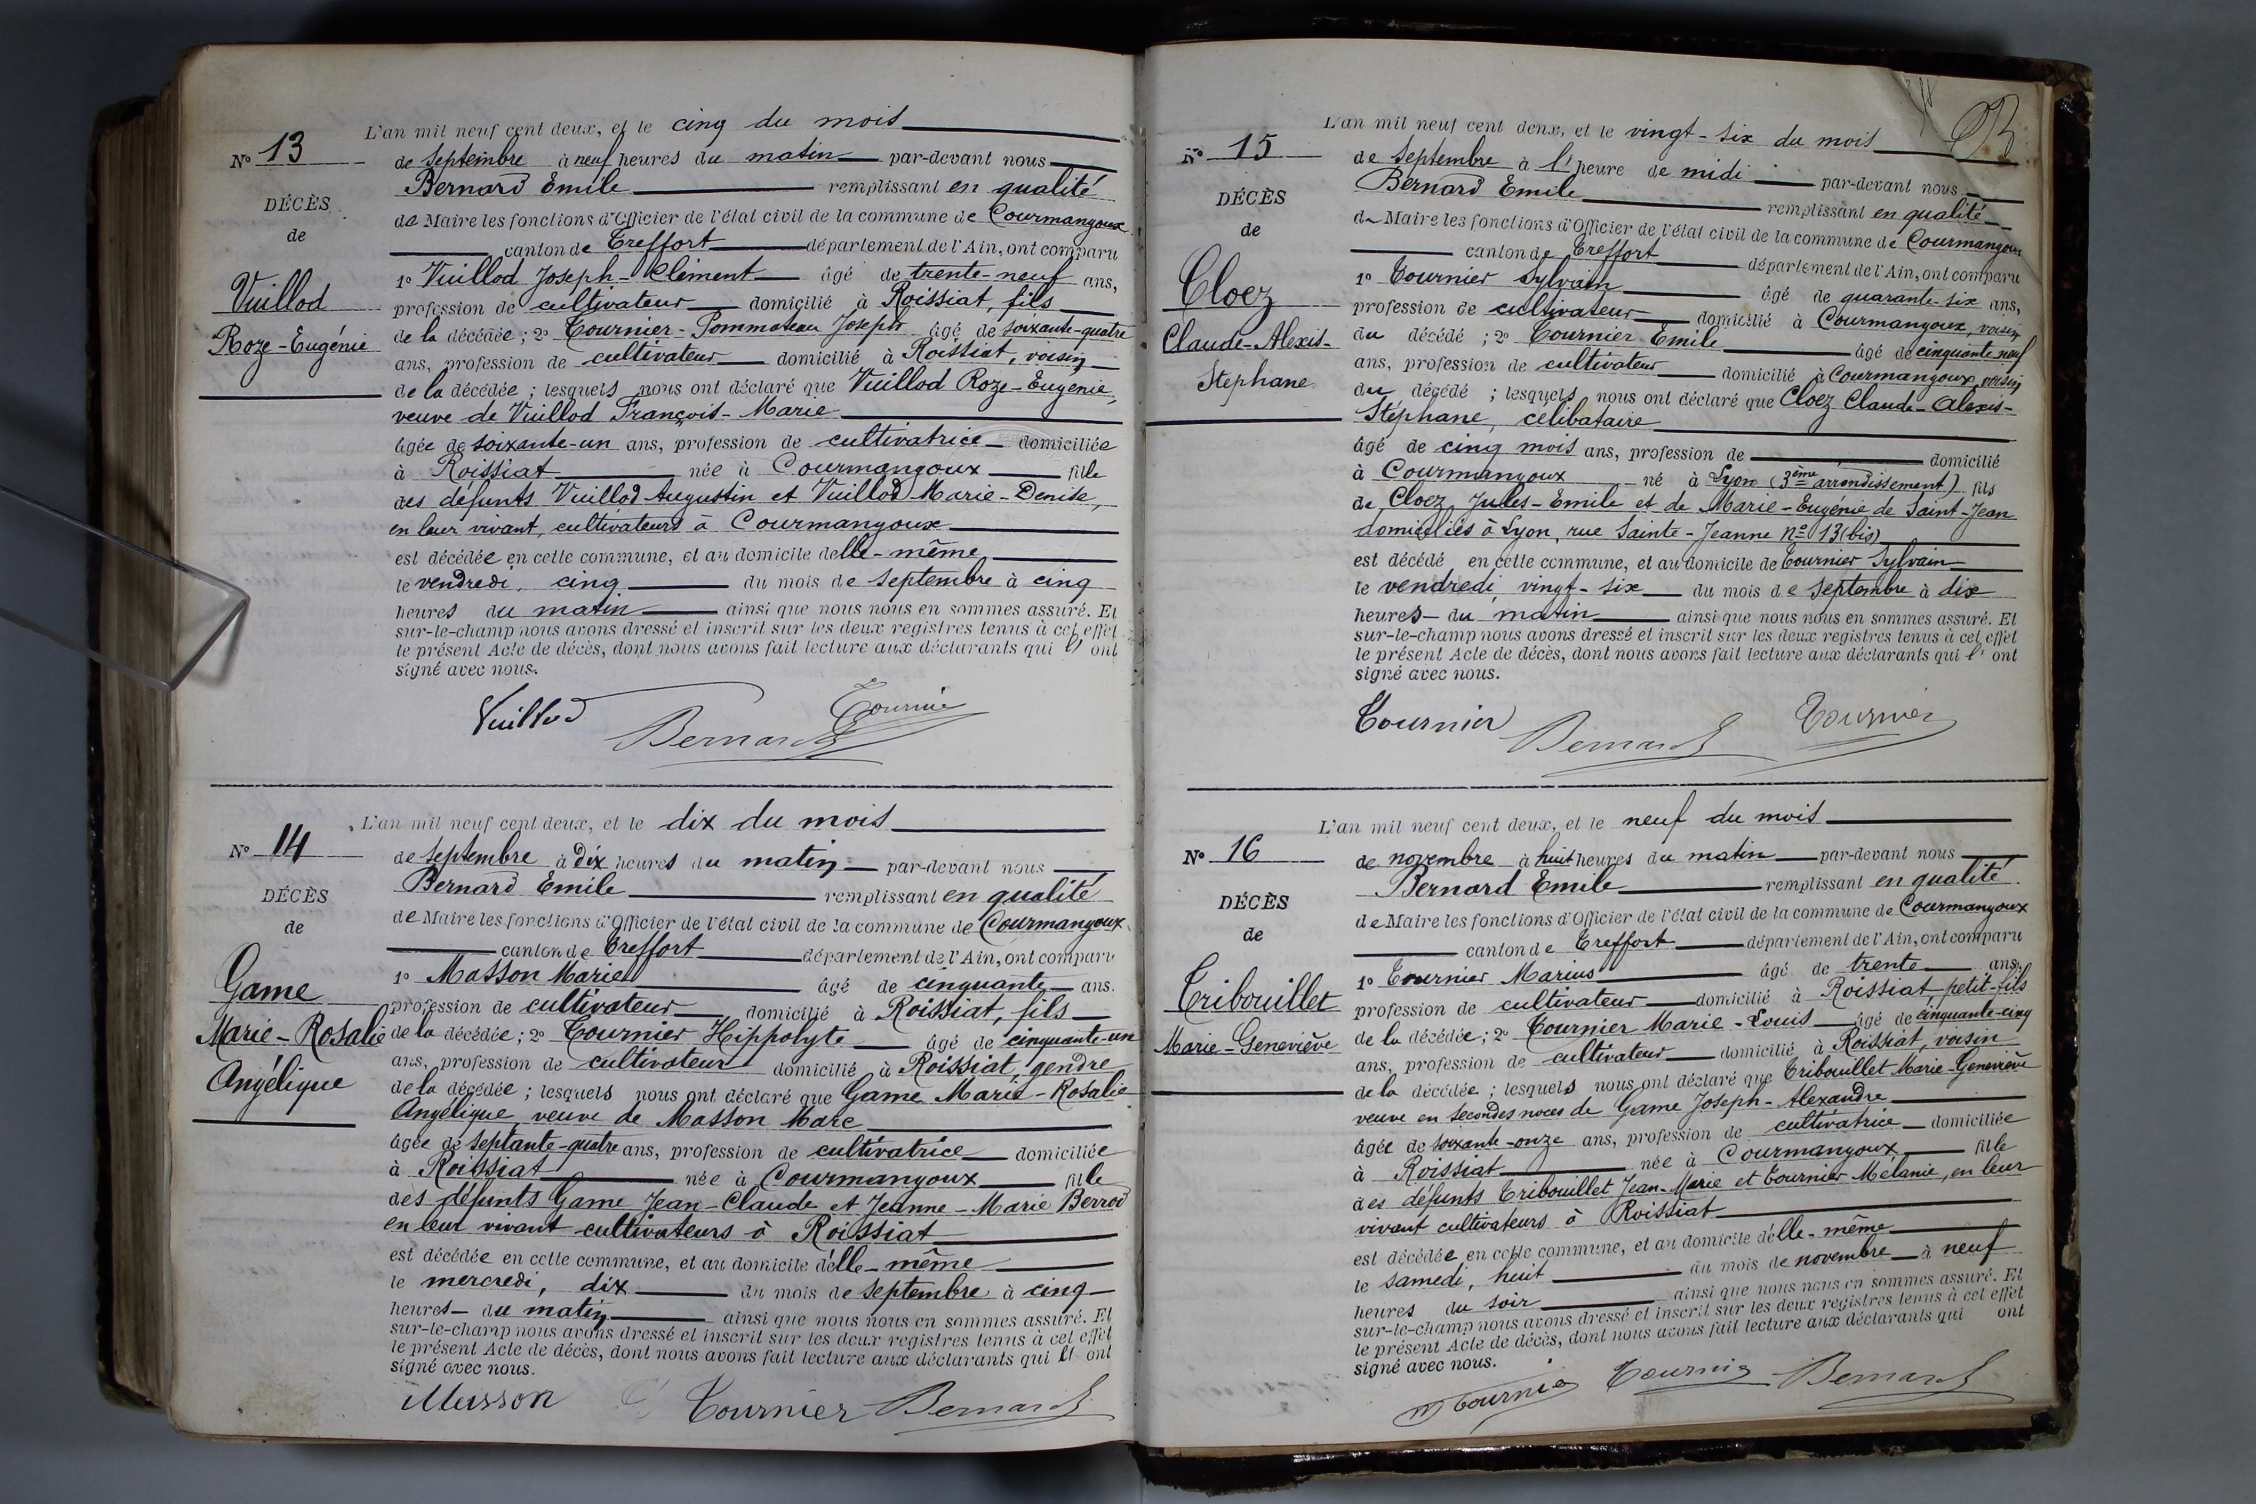 L'an mil neuf cent deux, et le cinq du mois
No 13
de septembre à neuf heures du matin par-devant nous
Bernard Emile remplissant en qualité
DÉCÈS
de Maire les fonctions d'Officier de l'état civil de la commune de Courmangoux
de
canton de Treffort département de l'Ain, ont comparu
1o Vuillod Joseph-Clément âgé de trente-neuf ans,
Vuillod
profession de cultivateur domicilié à Roissiat, fils
Roze-Eugénie
de la décédée; 2o Tournier-Pommateau Joseph âgé de soixante-quatre
ans, profession de cultivateur domicilié à Roissiat, voisin
de la décédée; lesquels nous ont déclaré que Vuillod Roze-Eugénie,
veuve de Vuillod François-Marie
âgée de soixante-un ans, profession de cultivatrice domiciliée
à Roissiat née à Courmangoux fille
des défunts Vuillod Augustin et Vuillod Marie-Denise,
en leur vivant, cultivateurs à Courmangoux
est décédée en cette commune, et au domicile d'elle-même
le vendredi, cinq du mois de septembre à cinq
heures du matin ainsi que nous nous en sommes assuré. Et
sur-le-champ nous avons dressé et inscrit sur les deux registres tenus à cet effet
le présent Acte de décès, dont nous avons fait lecture aux déclarants qui l' ont
signé avec nous.
Vuillod Bernard Tournier
L'an mil neuf cent deux, et le dix du mois
No 14
de septembre à Dix heures du matin par-devant nous
Bernard Emile remplissant en qualité
DÉCÈS
de Maire les fonctions d'Officier de l'état civil de la commune de Courmangoux
de
canton de Treffort département de l'Ain, ont comparu
1o Masson Marie âgé de cinquante ans.
Game
profession de cultivateur domicilié à Roissiat, fils
Marie-Rosalie
de la décédée; 2o Tournier Hippolyte âgé de cinquante-un
ans, profession de cultivateur domicilié à Roissiat, gendre
Angélique
de la décédée; lesquels nous ont déclaré que Game Marie-Rosalie
Angélique, veuve de Masson Marc
âgée de septante-quatre ans, profession de cultivatrice domiciliée
à Roissiat née à Courmangoux fille
des défunts Game Jean-Claude et Jeanne-Marie Berrod
en leur vivant cultivateurs à Roissiat
est décédée en cette commune, et au domicile d'elle-même
le mercredi, dix du mois de septembre à cinq
heures du matin ainsi que nous nous en sommes assuré. Et
sur-le-champ nous avons dressé et inscrit sur les deux registres tenus à cet effet
le présent Acte de décès, dont nous avons fait lecture aux déclarants qui l' ont
signé avec nous.
Masson Tournier Bernard
L'an mil neuf cent deux, et le vingt-six du mois
No 15
de septembre à l' heure de midi par-devant nous
Bernard Emile remplissant en qualité
DÉCÈS
de Maire les fonctions d'Officier de l'état civil de la commune de Courmangoux
de
canton de Treffort département de l'Ain, ont comparu
1o Tournier Sylvain âgé de quarante-six ans,
Cloez
profession de cultivateur domicilié à Courmangoux, voisin
Claude-Alexis-
du décédé; 2o Tournier Emile âgé de cinquante neuf
ans, profession de cultivateur domicilié à Courmangoux, voisin
Stephane
du décédé; lesquels nous ont déclaré que Cloez Claude-Alexis-
Stéphane, célibataire
âgé de cinq mois ans, profession de domicilié
à Courmangoux né à Lyon (3ème arrondissement) fils
de Cloez Jules-Emile et de Marie-Eugénie de Saint-Jean
domiciliés à Lyon, rue Sainte-Jeanne No 13 (bis)
est décédé en cette commune, et au domicile de Tournier Sylvain
le vendredi, vingt-six du mois de septembre à dix
heures du matin ainsi que nous nous en sommes assuré. Et
sur-le-champ nous avons dressé et inscrit sur les deux registres tenus à cet effet
le présent Acte de décès, dont nous avons fait lecture aux déclarants qui l' ont
signé avec nous.
Tournier Bernard Tournier
L'an mil neuf cent deux, et le neuf du mois
No 16
de novembre à huit heures du matin par-devant nous
Bernard Emile remplissant en qualité
DÉCÈS
de Maire les fonctions d'Officier de l'état civil de la commune de Courmangoux
de
canton de Treffort département de l'Ain, ont comparu
1o Tournier Marius âgé de trente ans,
Tribouillet
profession de cultivateur domicilié à Roissiat, petit-fils
Marie-Geneviève
de la décédée; 2o Tournier Marie-Louis âgé de cinquante-cinq
ans, profession de cultivateur domicilié à Roissiat, voisin
de la décédée; lesquels nous ont déclaré que Tribouillet Marie-Geneviève
veuve en secondes noces de Game Joseph-Alexandre
âgée de soixante-onze ans, profession de cultivatrice domiciliée
à Roissiat née à Courmangoux fille
des défunts Tribouillet Jean-Marie et Tournier Mélanie, en leur
vivant cultivateurs à Roissiat
est décédée en cette commune, et au domicile d'elle-même
le samedi, huit du mois de novembre à neuf
heures du soir ainsi que nous nous en sommes assuré. Et
sur-le-champ nous avons dressé et inscrit sur les deux registres tenus à cet effet
le présent Acte de décès, dont nous avons fait lecture aux déclarants qui ont
signé avec nous.
M Tournier Tournier Bernard